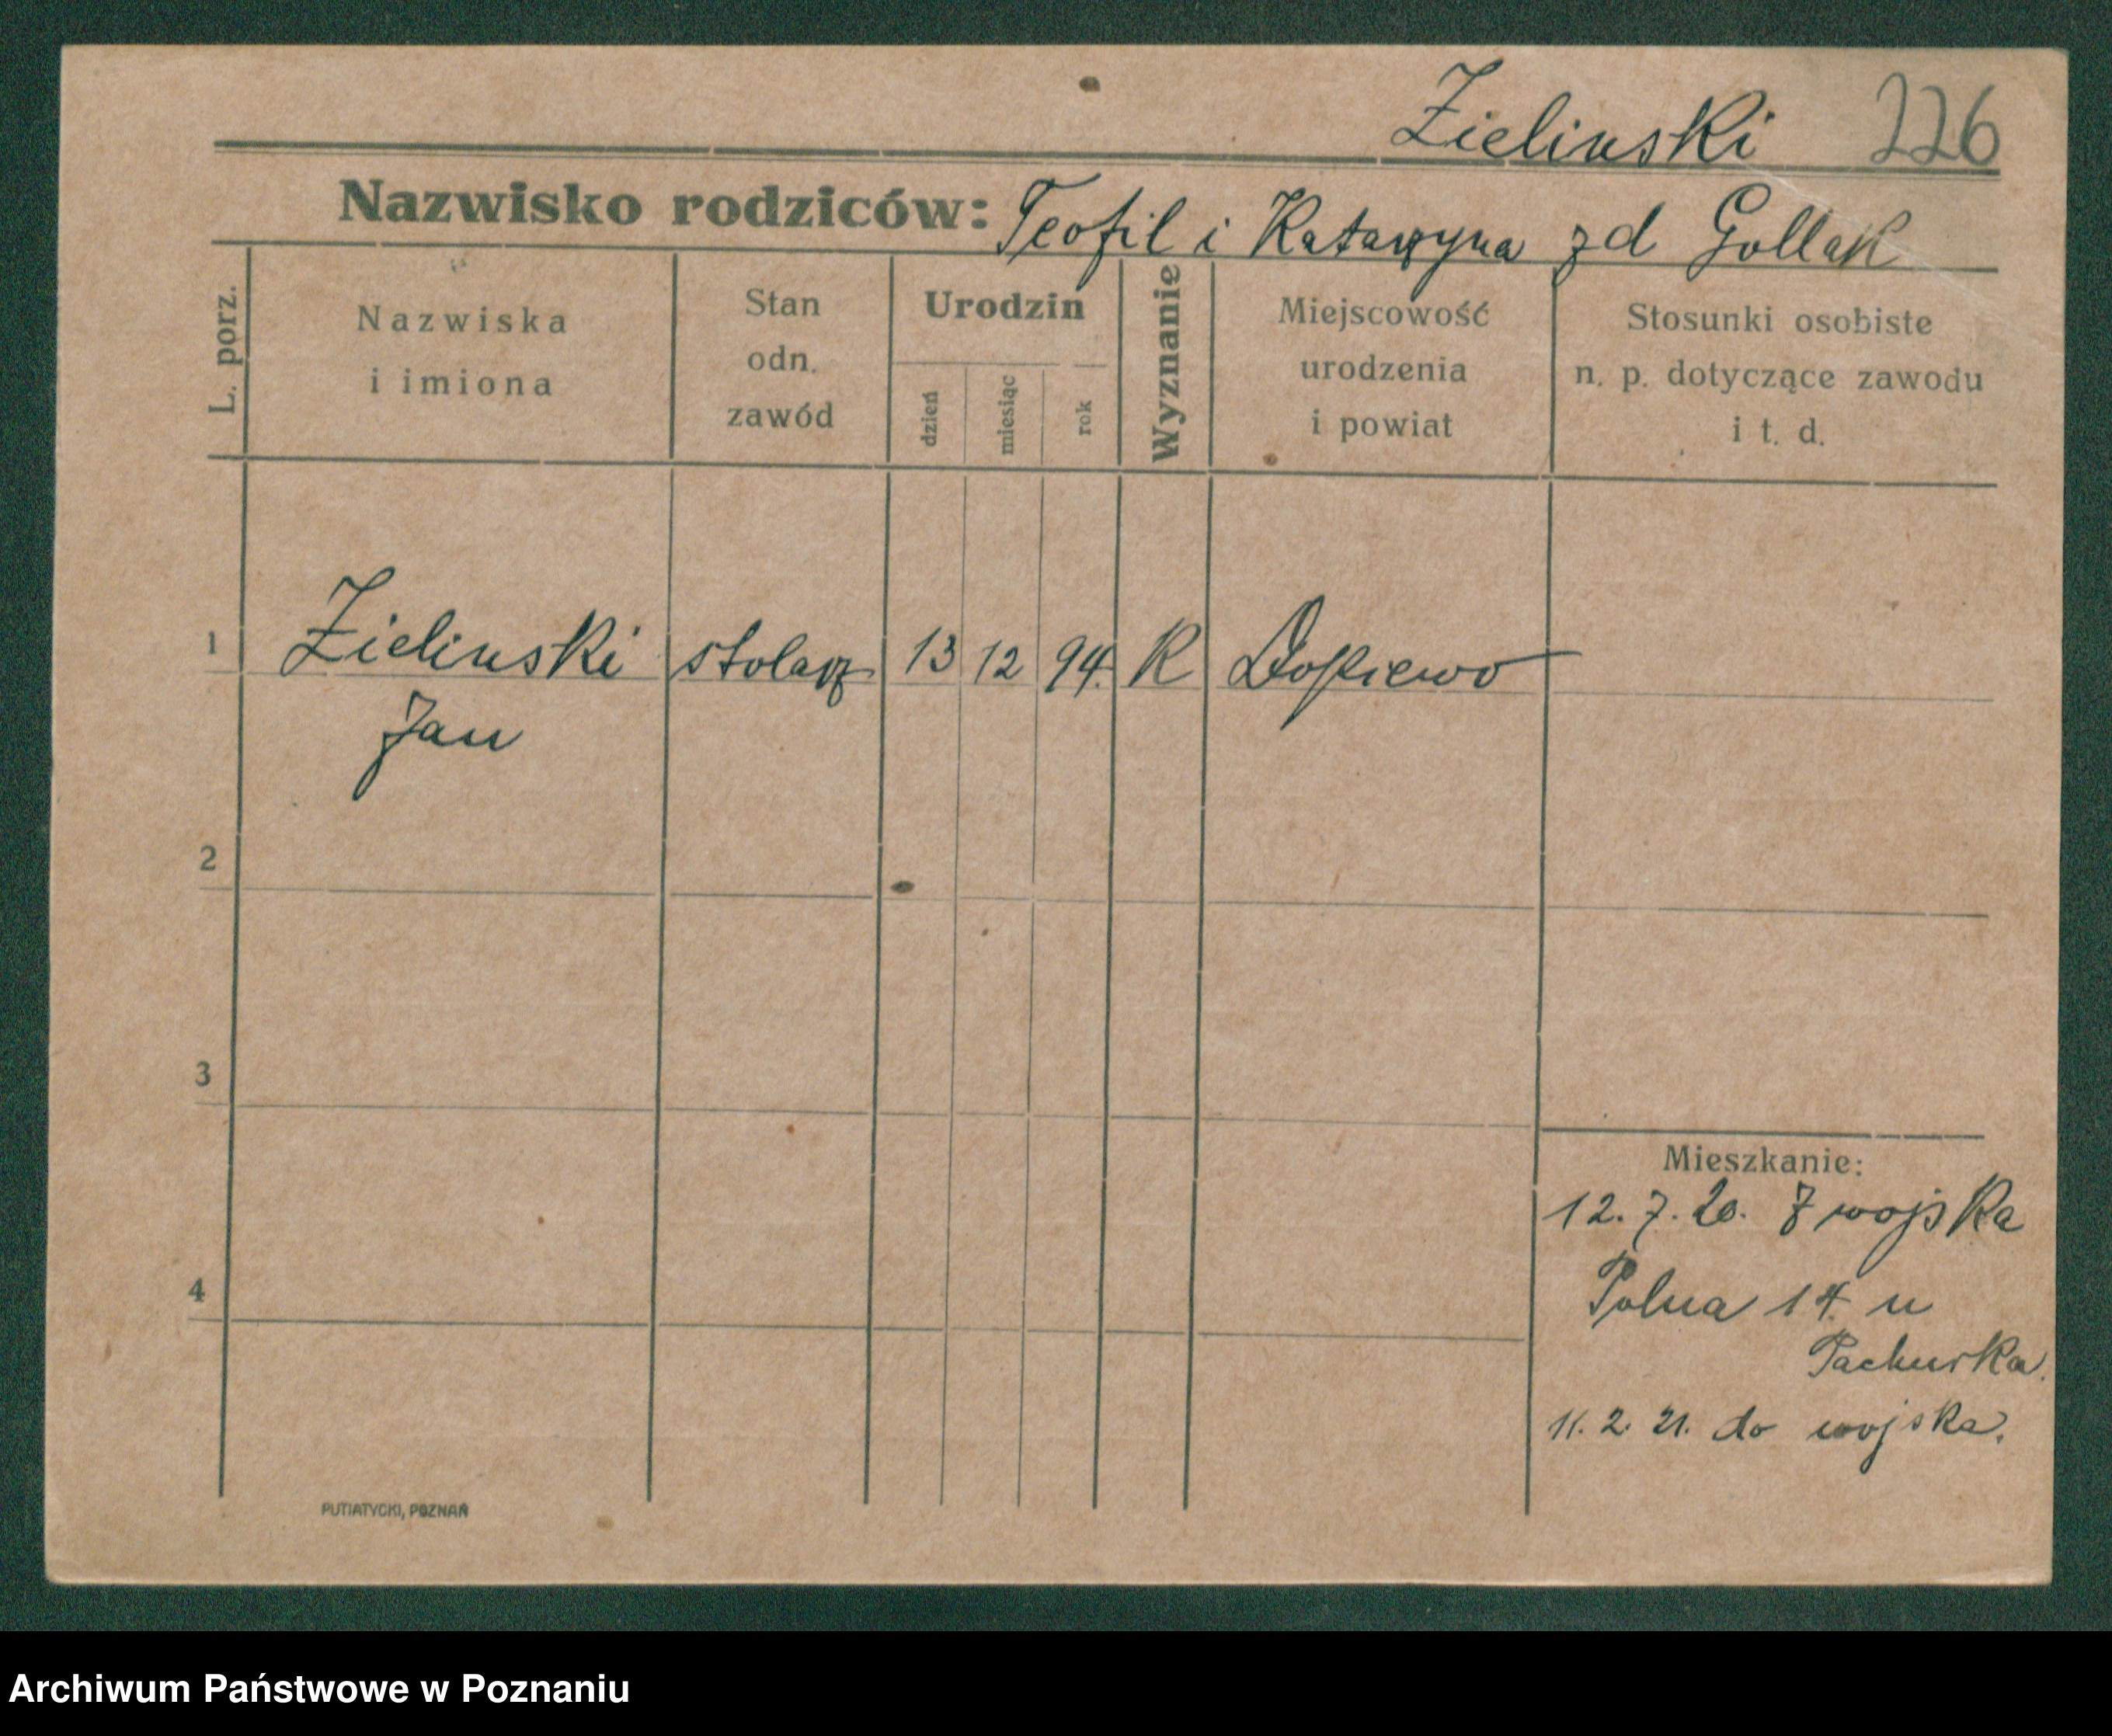 Zielinski 226
Nazwisko rodziców: Teofil i Katarzyna zd Gollak
L. porz.
Nazwiska
i imiona
Stan
odn.
zawód
Urodzin
dzień
miesiąc
rok
Wyznanie
Miejscowość
urodzenia
i powiat
Stosunki osobiste
n. p. dotyczące zawodu
i t. d.
1 Zielinski stolarz 13 12 94. R Dopiewo
Jan
2
3
4
Mieszkanie:
12. 7. 20. Z wojska
Polna 14. u
Pachurka.
11. 2. 21. do wojska.
PUTIATYCKI, POZNAŃ
Archiwum Państwowe w Poznaniu